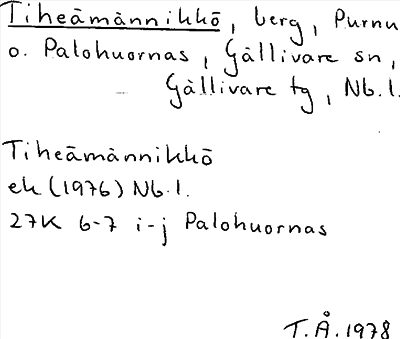 Tiheämännikkö, berg, Purnu
o. Palohuornas, Gällivare sn,
Gällivare tg, Nb.l.
Tiheämännikkö
ek (1976) Nb.l.
27K 6-7 i-j Palohuornas
T.Å. 1978